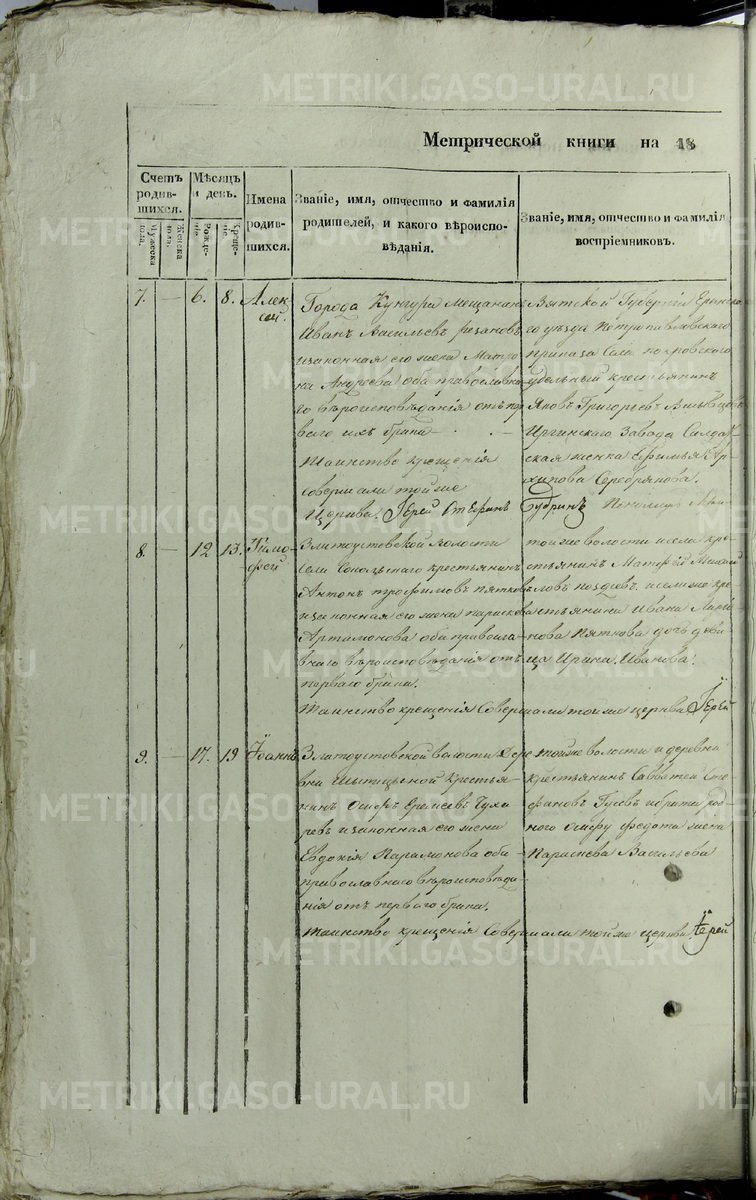 METRIKI.GASO-URAL.RU
Метрической книги на 18
Счетъ родив-шихся.
Мужеска пола.
Женска пола.
Мѣсяцъ и день.
Рожде-нія.
Креще-нія.
Имена родив-шихся.
Званіе, имя, отчество и фамилія родителей, и какого вѣроиспо-вѣданія.
Званіе, имя, отчество и фамилія воспріемниковъ.
7. — 6. 8. Алек-сей.
Города Кунгура Мещанинъ
Иванъ Васильевъ
изаконная его жена Матро
на Андреева оба православна
го вѣроисповѣданія отъ пер
ваго ихъ брака
Таинство крещенія
совершали тойже
Церкви. Іерей Стефанъ
Вятской Губерніи
го уѣзда Петропавловскаго
приказа Села покровскаго
удельный крестьянинъ
Яковъ Григорьевъ
Иргинскаго Завода Салдат
ская женка Ефимья Ар
хипова Серебрякова.
8. — 12 13. Тимо-фей
Златоустовской Волости
Села Сокольскаго крестьянинъ
Антонъ трофимовъ пятковъ
изаконная его жена параскева
Артамонова оба православ
наго вѣроисповѣданія отъ
перваго брака.
Таинство крещенія Совершали тойже церкви Іерей
тойже волости исела кре
стьянинъ Матфей Михай
ловъ исела же кре
стьянина Ивана
Пяткова дочь деви
ца Ирина Иванова.
9. — 17. 19 Іоаннъ
Златоустовской волости Дере
вни крестья-
нинъ Осифъ Еремеевъ Чуха
ревъ изаконная его жена
Евдокія Парамонова оба
православнаго вѣроисповѣда-
нія отъ перваго брака.
Таинство крещенія Совершали тойже церкви Іерей
тойже волости и деревни
крестьянинъ Савватей Сте
фановъ Гусевъ ибрата род-
наго Осифу федота жена
Параскева Васильева